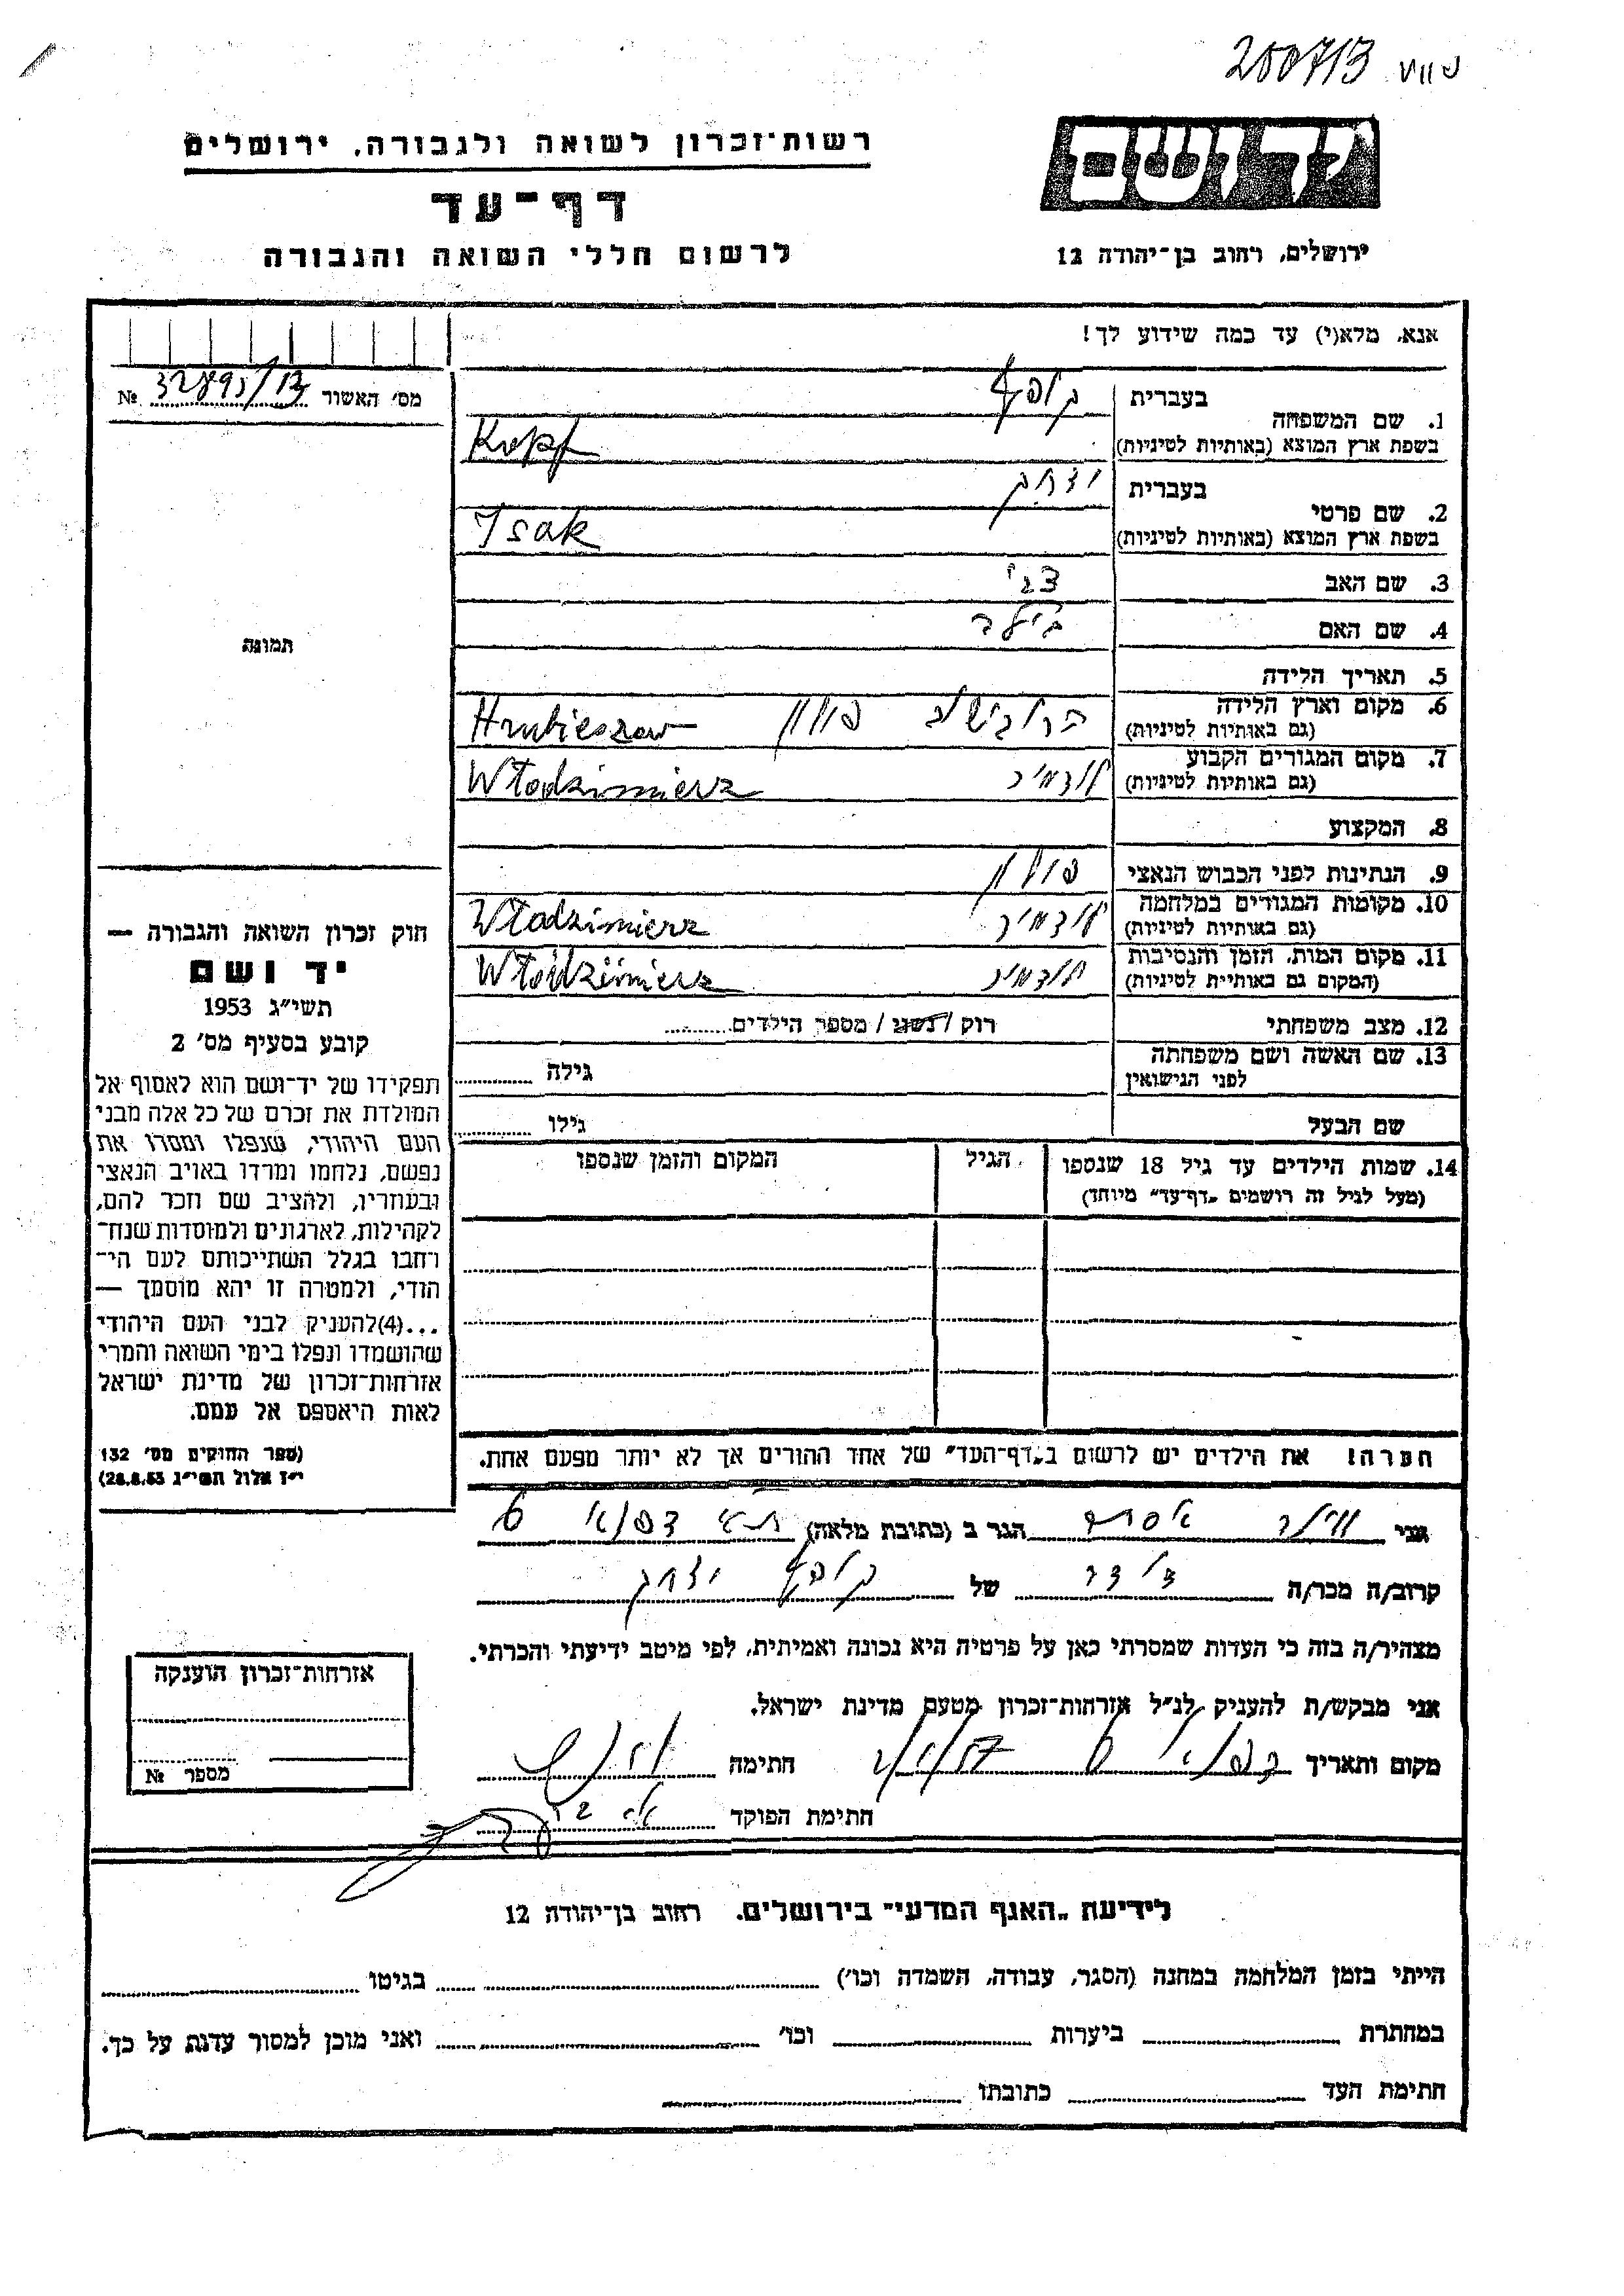 200713
רשות־זכרון לשואה ולגבורה, ירושלים
ידושם
דף־עד
לרשום חללי השואה והגבורה
ירושלים, רחוב בן־יהודה 12
אנא, מלא(י) עד כמה שידוע לך!
מס׳ האשור № 32895/13
1. שם המשפחה בעברית קופף
בשפת ארץ המוצא (באותיות לטיניות) Kopf
2. שם פרטי בעברית יצחק
בשפת ארץ המוצא (באותיות לטיניות) Isak
3. שם האב צבי
4. שם האם ביילה
תמונה
5. תאריך הלידה
6. מקום וארץ הלידה הרובישוב פולין Hrubieszow
(גם באותיות לטיניות)
7. מקום המגורים הקבוע לודמיר Włodzimierz
(גם באותיות לטיניות)
8. המקצוע
9. הנתינות לפני הכבוש הנאצי פולין
10. מקומות המגורים במלחמה לודמיר Włodzimierz
(גם באותיות לטיניות)
11. מקום המות, הזמן והנסיבות לודמיר Włodzimierz
(המקום גם באותיית לטיניות)
12. מצב משפחתי רוק / נשוי / מספר הילדים
13. שם האשה ושם משפחתה גילה
לפני הנישואין
שם הבעל גילו
14. שמות הילדים עד גיל 18 שנספו הגיל המקום והזמן שנספו
(מעל לגיל זה רושמים „דף־עד” מיוחד)
חוק זכרון השואה והגבורה —
יד ושם
תשי״ג 1953
קובע בסעיף מס׳ 2
תפקידו של יד־ושם הוא לאסוף אל
המולדת את זכרם של כל אלה מבני
העם היהודי, שנפלו ומסרו את
נפשם, נלחמו ומרדו באויב הנאצי
ובעוזריו, ולהציב שם וזכר להם,
לקהילות, לארגונים ולמוסדות שנח־
רחבו בגלל השתייכותם לעם הי־
הודי, ולמטרה זו יהא מוסמך —
...(4)להעניק לבני העם היהודי
שהושמדו ונפלו בימי השואה והמרי
אזרחות־זכרון של מדינת ישראל
לאות היאספם אל עמם.
(ספר החוקים מס׳ 132
י״ז אלול תשי״ג 28.8.53)
הערה! את הילדים יש לרשום ב„דף־העד” של אחד ההורים אך לא יותר מפעם אחת.
אני אסתר הגר ב (כתובת מלאה)
קרוב/ה מכר/ה של קופף יצחק
מצהיר/ה בזה כי העדות שמסרתי כאן על פרטיה היא נכונה ואמיתית, לפי מיטב ידיעתי והכרתי.
אני מבקש/ת להעניק לנ״ל אזרחות־זכרון מטעם מדינת ישראל.
מקום ותאריך חתימה
חתימת הפוקד
אזרחות־זכרון הוענקה
מספר №
לידיעת „האגף המדעי” בירושלים, רחוב בן־יהודה 12
הייתי בזמן המלחמה במחנה (הסגר, עבודה, השמדה וכו׳) בגיטו
במחתרת ביערות וכו׳ ואני מוכן למסור עדות על כך.
חתימת העד כתובתו